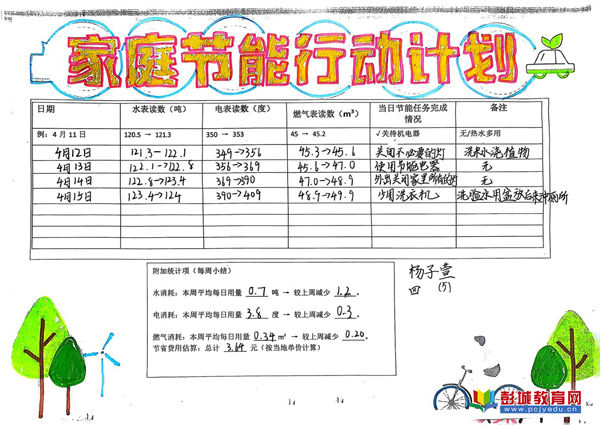 家庭节能行动计划
日期 水表读数（吨） 电表读数（度） 燃气表读数（m³） 当日节能任务完成情况 备注
例：4月11日 120.5 → 121.3 350 → 353 45 → 45.2 √关待机电器 无/热水多用
4月12日 121.3→122.1 349→356 45.3→45.6 关闭不必要的灯 洗米水浇植物
4月13日 122.1→122.8 356→369 45.6→47.0 使用节能电器 无
4月14日 122.8→123.4 369→390 47.0→48.9 外出关闭家里所有的灯 无
4月15日 123.4→124 390→409 48.9→49.9 少用洗衣机 洗脸水用盆放后来冲厕所
附加统计项（每周小结）
水消耗：本周平均每日用量 0.7 吨 → 较上周减少 1.2。
电消耗：本周平均每日用量 3.8 度 → 较上周减少 0.3。
燃气消耗：本周平均每日用量 0.34 m³ → 较上周减少 0.20。
节省费用估算：总计 3.64 元（按当地单价计算）
杨子萱
四（5）
彭城教育网
www.pcjyedu.cn